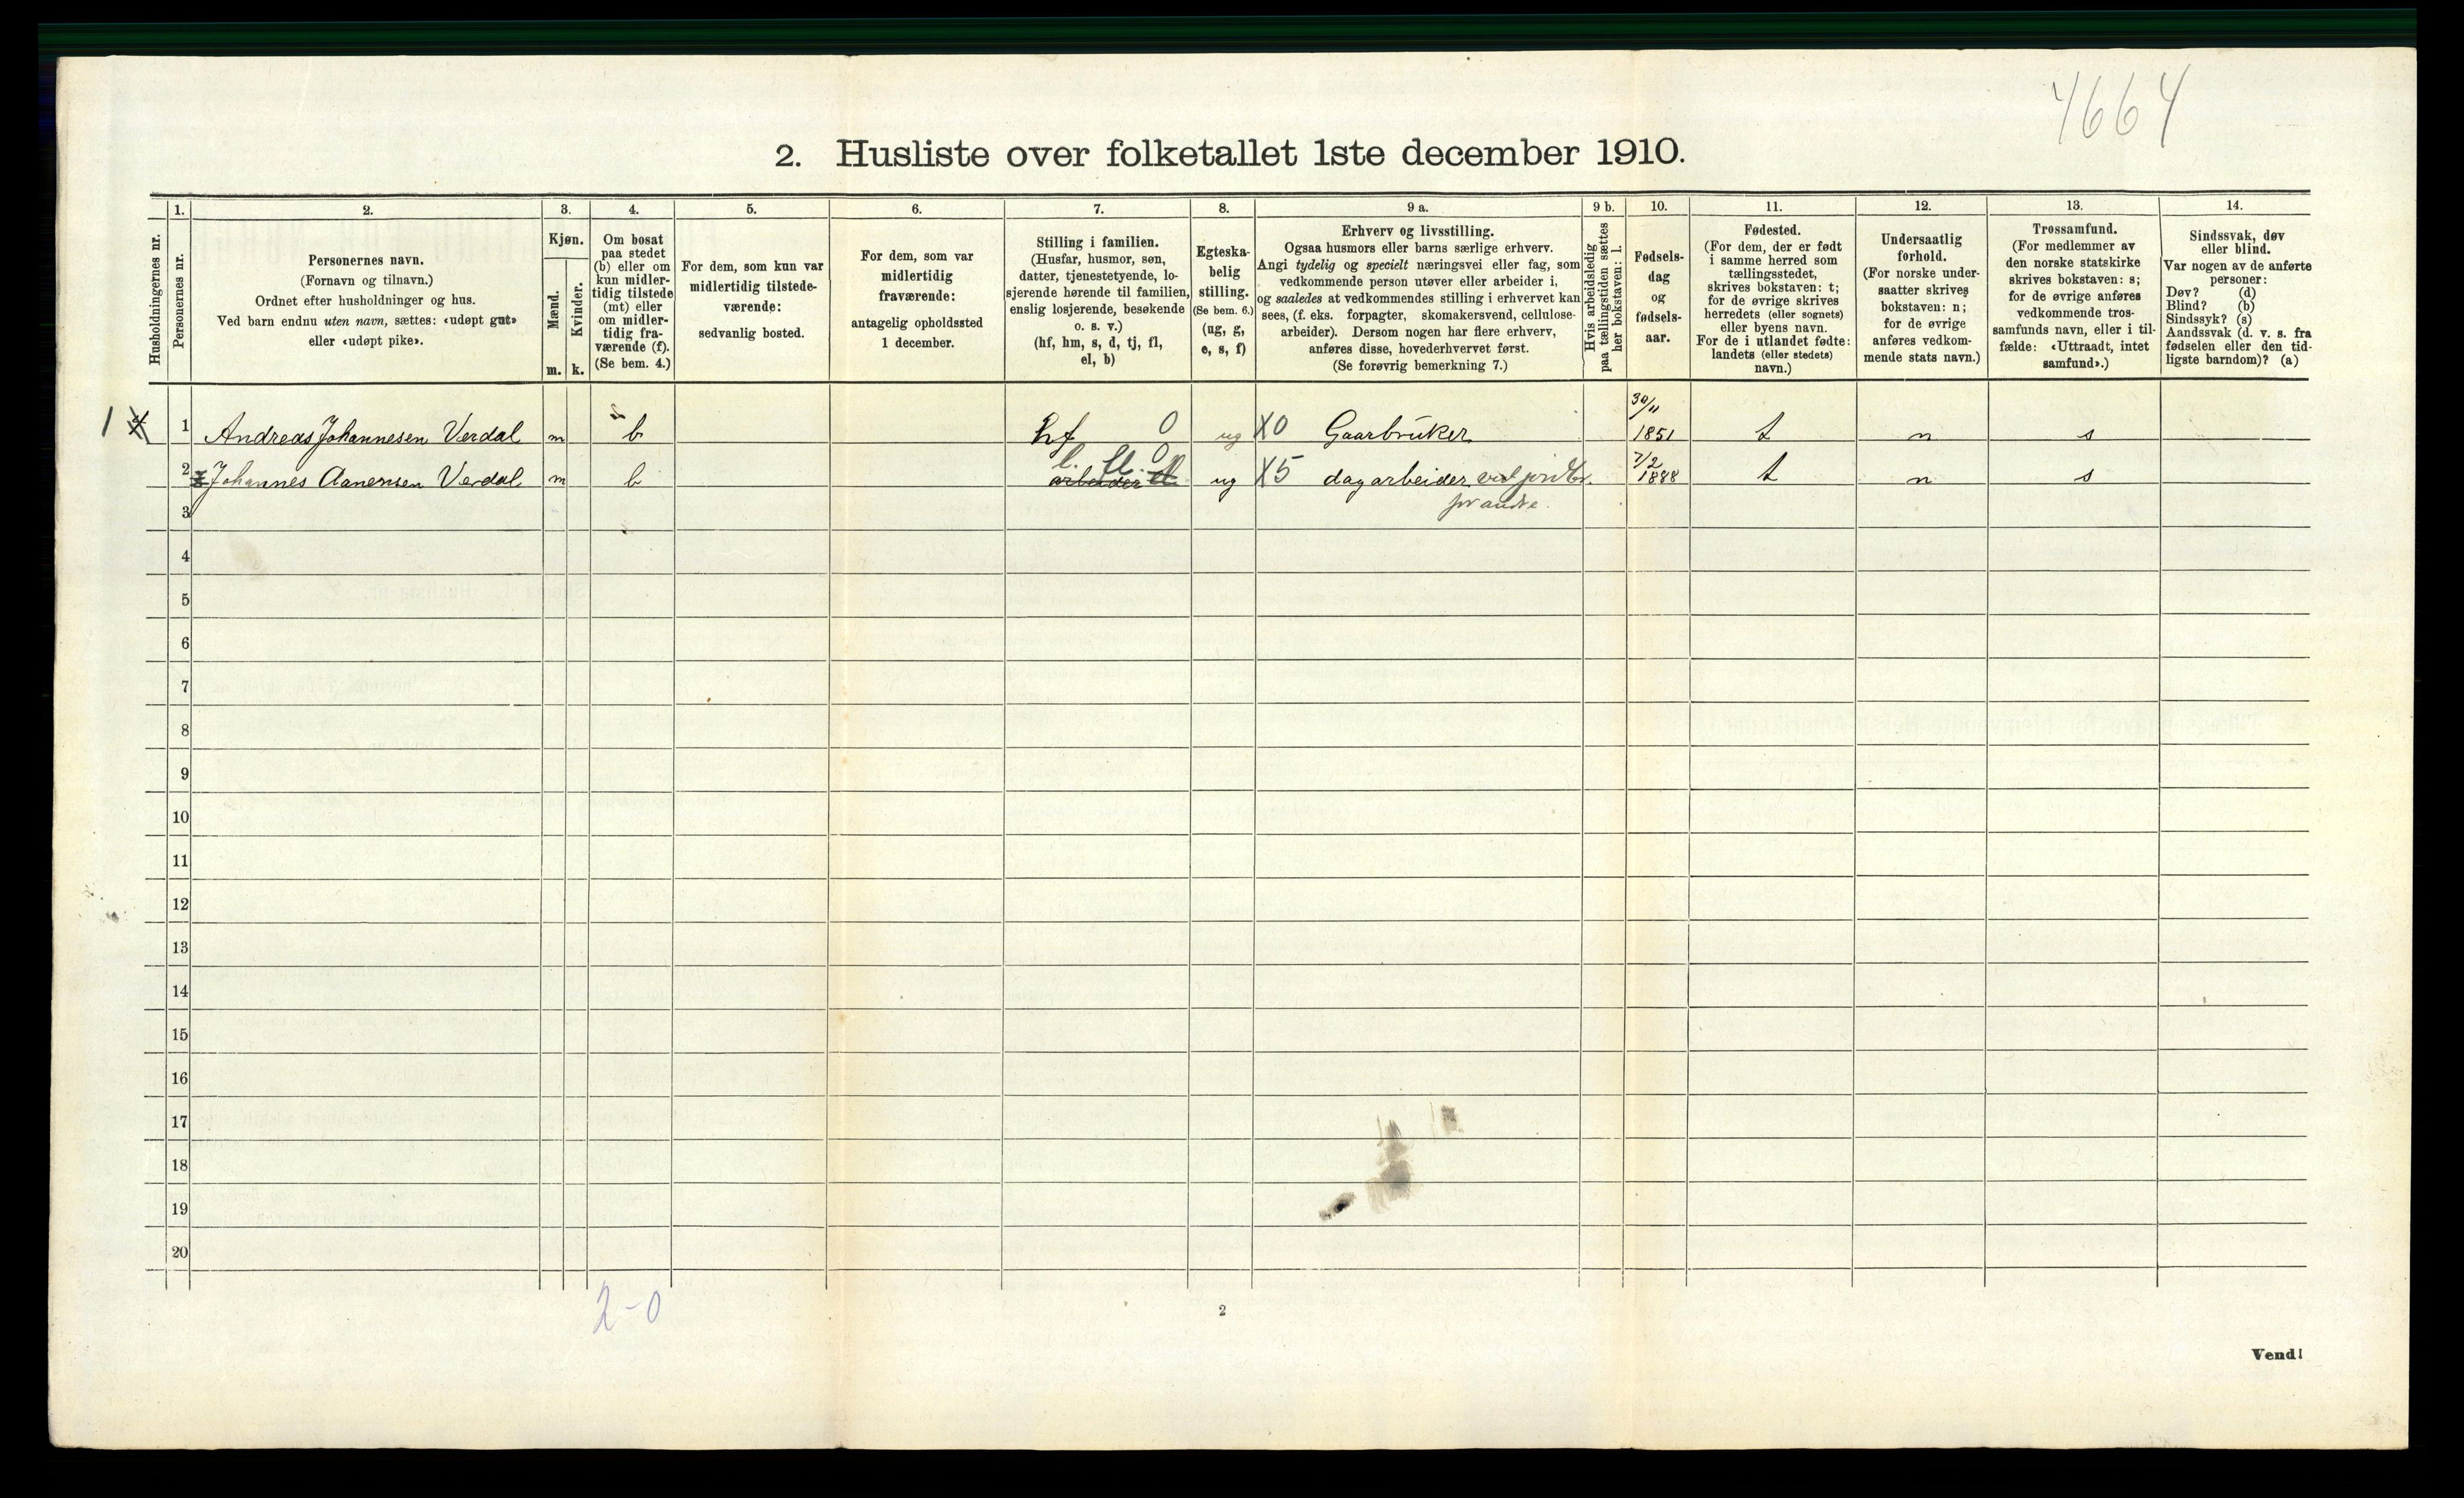 4664
2. Husliste over folketallet 1ste december 1910.
Husholdningernes nr.
1.
Personernes nr.
2.
Personernes navn.
(Fornavn og tilnavn.)
Ordnet efter husholdninger og hus.
Ved barn endnu uten navn, sættes: «udøpt gut»
eller «udøpt pike».
3.
Kjøn.
Mænd.
Kvinder.
m. k.
4.
Om bosat
paa stedet
(b) eller om
kun midler-
tidig tilstede
(mt) eller
om midler-
tidig fra-
værende (f).
(Se bem. 4.)
5.
For dem, som kun var
midlertidig tilstede-
værende:
sedvanlig bosted.
6.
For dem, som var
midlertidig
fraværende:
antagelig opholdssted
1 december.
7.
Stilling i familien.
(Husfar, husmor, søn,
datter, tjenestetyende, lo-
sjerende hørende til familien,
enslig losjerende, besøkende
o. s. v.)
(hf, hm, s, d, tj, fl,
el, b)
8.
Egteska-
belig
stilling.
(Se bem. 6.)
(ug, g,
e, s, f)
9 a.
Erhverv og livsstilling.
Ogsaa husmors eller barns særlige erhverv.
Angi tydelig og specielt næringsvei eller fag, som
vedkommende person utøver eller arbeider i,
og saaledes at vedkommendes stilling i erhvervet kan
sees, (f. eks. forpagter, skomakersvend, cellulose-
arbeider). Dersom nogen har flere erhverv,
anføres disse, hovederhvervet først.
(Se forøvrig bemerkning 7.)
9 b.
Hvis arbeidsledig
paa tællingstiden sættes
her bokstaven: l.
10.
Fødsels-
dag
og
fødsels-
aar.
11.
Fødested.
(For dem, der er født
i samme herred som
tællingsstedet,
skrives bokstaven: t;
for de øvrige skrives
herredets (eller sognets)
eller byens navn.
For de i utlandet fødte:
landets (eller stedets)
navn.)
12.
Undersaatlig
forhold.
(For norske under-
saatter skrives
bokstaven: n;
for de øvrige
anføres vedkom-
mende stats navn.)
13.
Trossamfund.
(For medlemmer av
den norske statskirke
skrives bokstaven: s;
for de øvrige anføres
vedkommende tros-
samfunds navn, eller i til-
fælde: «Uttraadt, intet
samfund».)
14.
Sindssvak, døv
eller blind.
Var nogen av de anførte
personer:
Døv? (d)
Blind? (b)
Sindssyk? (s)
Aandssvak (d. v. s. fra
fødselen eller den tid-
ligste barndom)? (a)
1 1 Andreas Johannesen Verdal m b hf 0 ug X0 Gaarbrüker 30/11 1851 t n s
2 Johannes Aanensen Verdal m b arbeider fl. 0 ug X5 dagarbeider ved jordbr. 7/2 1888 t n s
for andre.
3
4
5
6
7
8
9
10
11
12
13
14
15
16
17
18
19
20
2-0
2
Vend!